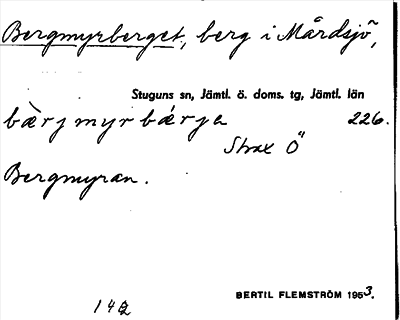 Bergmyrberget, berg i Mårdsjö,
Stuguns sn, Jämtl. ö. doms. tg, Jämtl. län
bæ̀rj myr bǽrjɐ 226.
Strax Ö
Bergmyran.
BERTIL FLEMSTRÖM 1953.
142